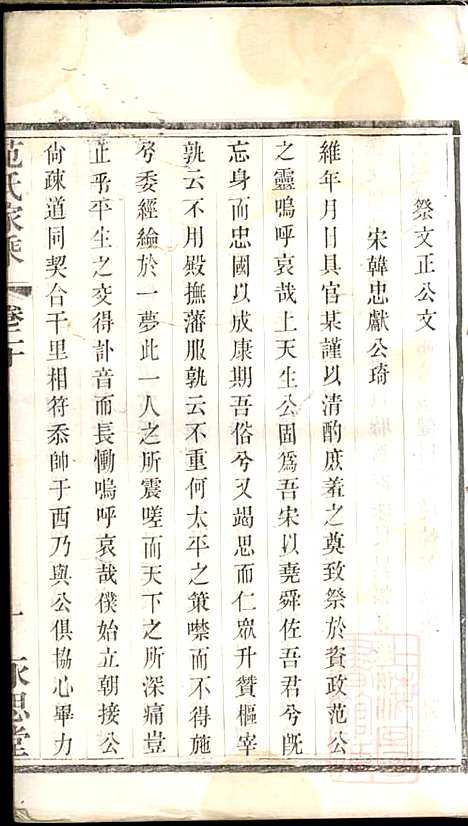 祭文正公文
宋韓忠獻公琦
維年月日具官某謹以清酌庶羞之奠致祭於資政范公
之靈嗚呼哀哉上天生公固爲吾宋以堯舜佐吾君兮旣
忘身而忠國以成康期吾俗兮又竭思而仁眾升贊樞宰
孰云不用殿撫藩服孰云不重何太平之策噤而不得施
兮委經綸於一夢此一人之所震嗟而天下之所深痛豈
止乎平生之交得訃音而長慟嗚呼哀哉僕始立朝接公
尙疎道同契合千里相符忝帥于西乃與公俱協心畢力
范氏家乘
卷二十
永思堂